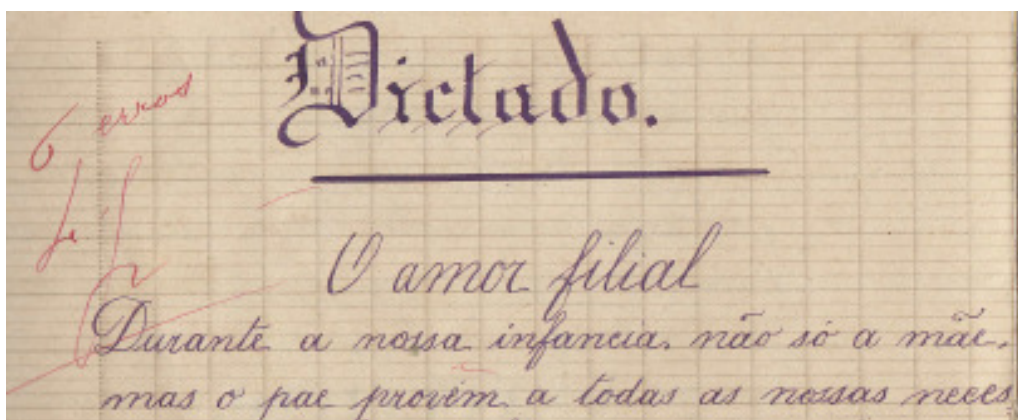 Dictado.
6 erros
O amor filial
Durante a nossa infancia, não só a mãe,
mas o pae provêm a todas as nossas neces